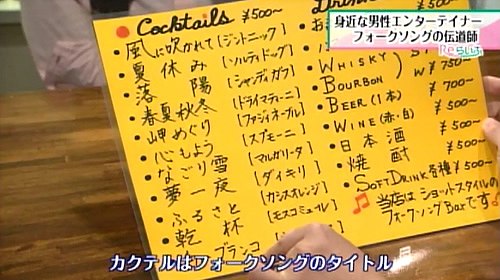 身近な男性エンターテイナー
フォークソングの伝道師
Reらいふ
Cocktails ¥500〜
風に吹かれて[ジントニック]
夏休み[ソルティドッグ]
落陽[シャンディガフ]
春夏秋冬[ドライマティーニ]
岬めぐり[ファジィネーブル]
心もよう[スプモーニ]
なごり雪[マルガリータ]
夢一夜[ダイキリ]
ふるさと[カシスオレンジ]
乾杯[モスコミュール]
ブランコ
WHISKY
BOURBON ¥750〜
BEER(1本) ¥700〜
WINE(赤・白) ¥500〜
日本酒 ¥500〜
焼酎 ¥500〜
SOFT DRINK各種 ¥500〜
♫当店はショットスタイルの
フォークソングBarです♫
カクテルはフォークソングのタイトル